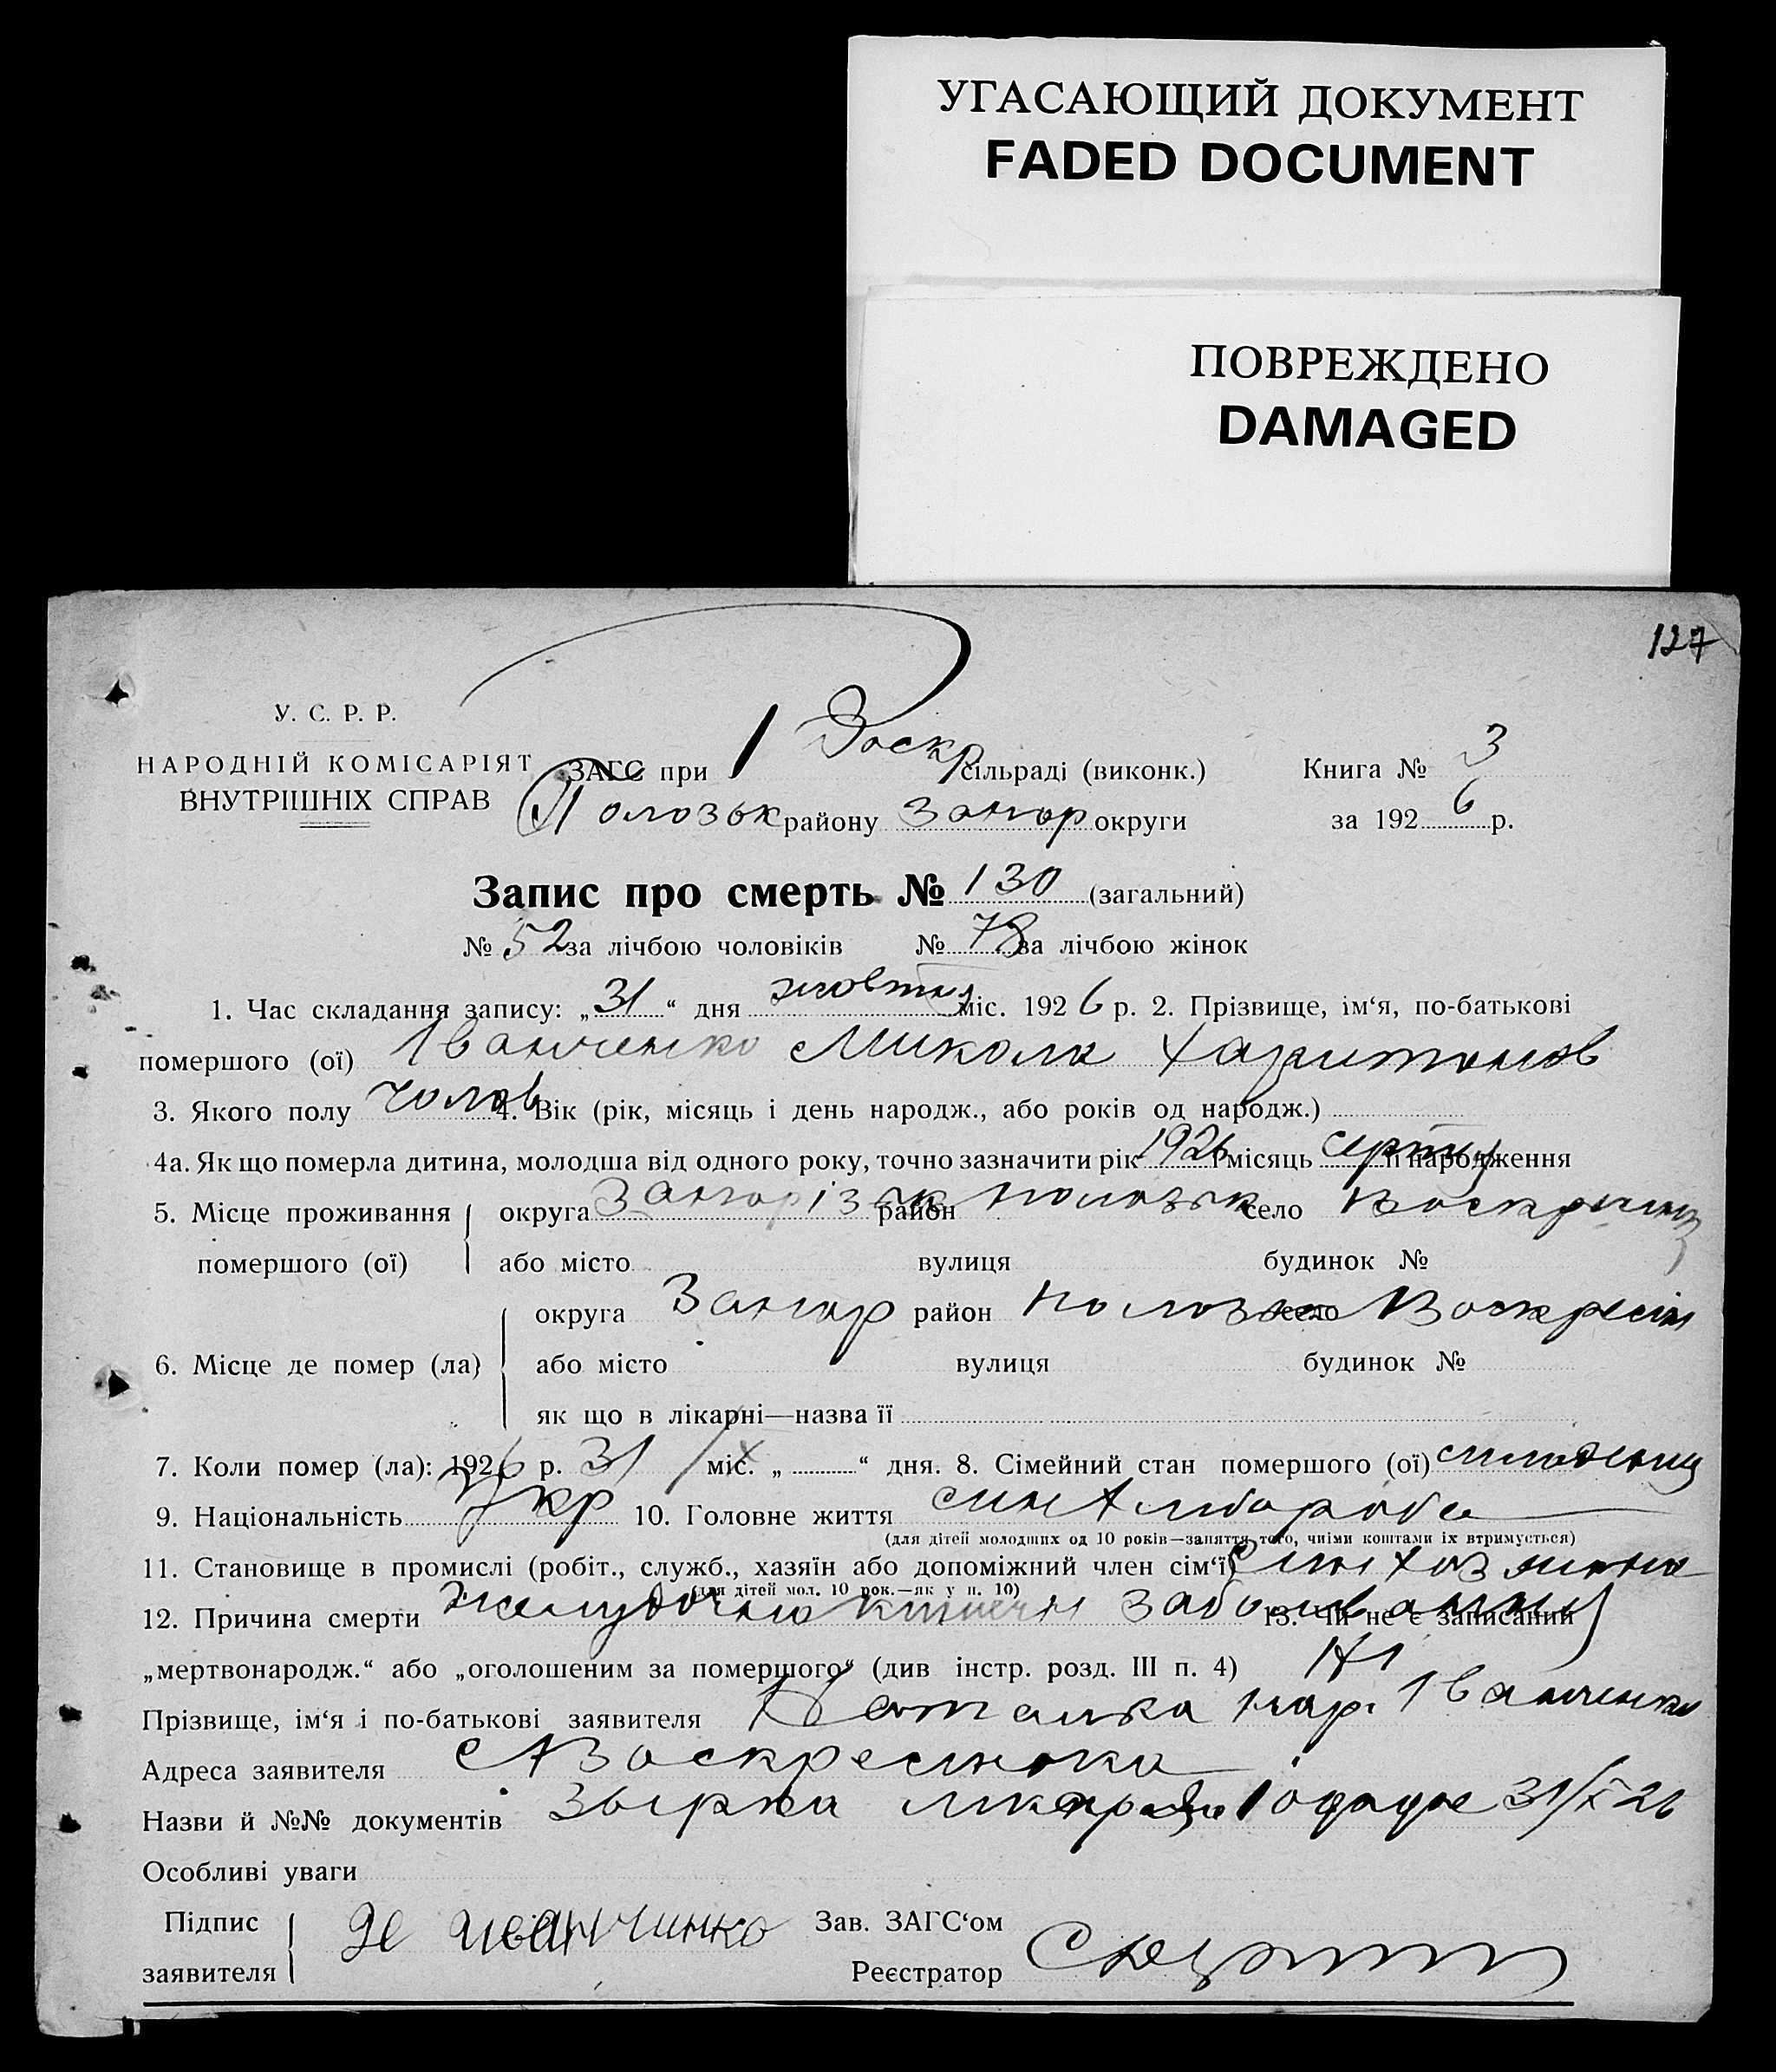 УГАСАЮЩИЙ ДОКУМЕНТ
FADED DOCUMENT
ПОВРЕЖДЕНО
DAMAGED
127
У. С. Р. Р.
НАРОДНІЙ КОМІСАРІЯТ
ВНУТРІШНІХ СПРАВ
ЗАГС при 1 Воскр сільраді (виконк.) Книга № 3
Полозьк району Запор округи за 1926 р.
Запис про смерть № 130 (загальний)
№ 52 за лічбою чоловіків № 78 за лічбою жінок
1. Час складання запису: „31“ дня жовтня міс. 1926 р. 2. Прізвище, ім‘я, по-батькові
помершого (ої) Іванченко Микола Харитонов
3. Якого полу чолов 4. Вік (рік, місяць і день народж., або років од народж.)
4а. Як що померла дитина, молодша від одного року, точно зазначити рік 1926 і місяць серпня її народження
5. Місце проживання помершого (ої) округа Запорізьк район Полозьк село
або місто вулиця будинок №
6. Місце де помер (ла) округа Запор район село
або місто вулиця будинок №
як що в лікарні—назва її
7. Коли помер (ла): 1926 р. 31/X міс. „ “ дня. 8. Сімейний стан помершого (ої)
9. Національність Укр 10. Головне життя син хлібороба
(для дітей молодших од 10 років—заняття того, чиїми коштами їх втримується)
11. Становище в промислі (робіт., служб., хазяїн або допоміжний член сім‘ї) син хазяїна
(для дітей мол. 10 рок.—як у п. 10)
12. Причина смерти 13. Чи не є записаний
„мертвонародж.“ або „оголошеним за помершого“ (див інстр. розд. III п. 4) Ні
Прізвище, ім‘я і по-батькові заявителя Наталка Іванченко
Адреса заявителя с Воскресенка
Назви й №№ документів 31/X 26
Особливі уваги
Підпис заявителя Иванчинко Зав. ЗАГС‘ом
Реєстратор